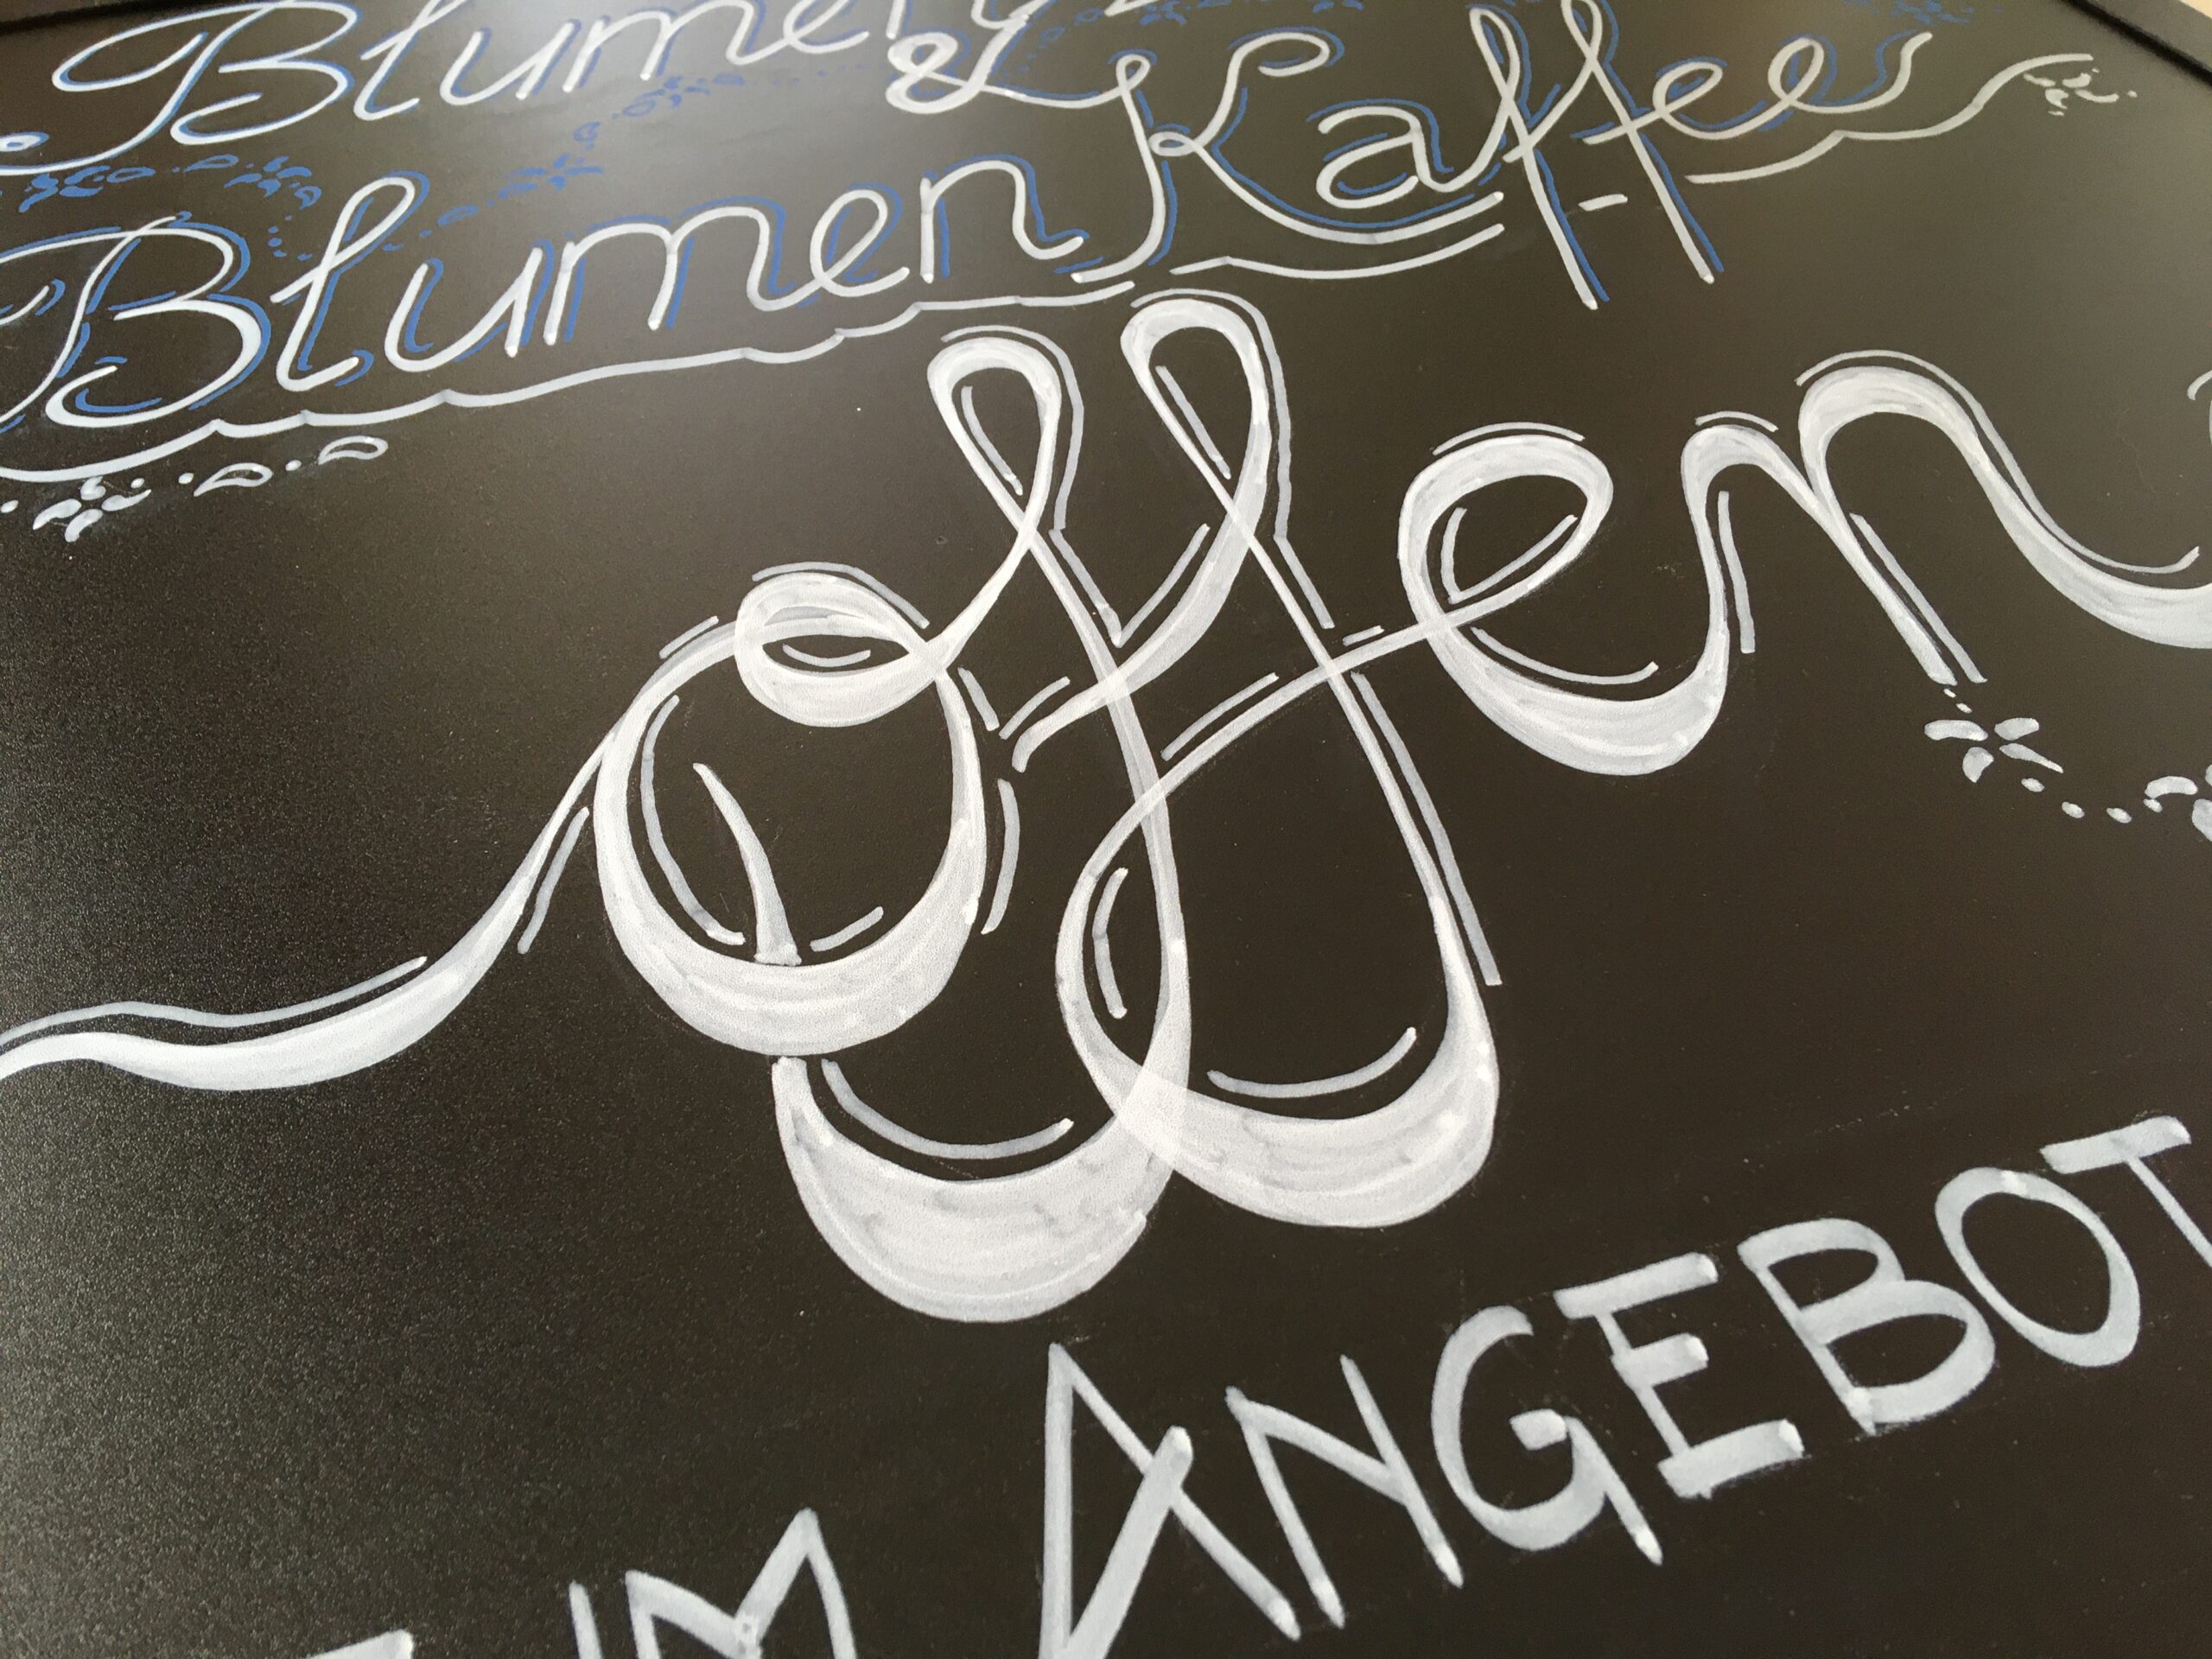 Blumen
& Kaffee
Blumen
offen
IM ANGEBOT